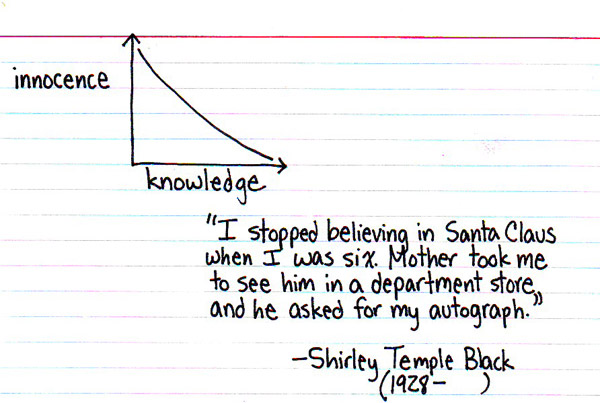 innocence
knowledge
"I stopped believing in Santa Claus
when I was six. Mother took me
to see him in a department store,
and he asked for my autograph."
-Shirley Temple Black
(1928- )